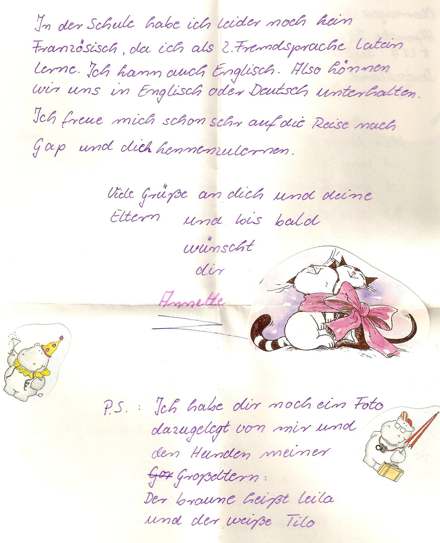 In der Schule habe ich leider noch kein
Französisch, da ich als 2. Fremdsprache Latein
lerne. Ich kann auch Englisch. Also können
wir uns in Englisch oder Deutsch unterhalten.
Ich freue mich schon sehr auf die Reise nach
Gap und dich kennenzulernen.
Viele Grüße an dich und deine
Eltern und bis bald
wünscht
dir
Annette
P.S.: Ich habe dir noch ein Foto
dazugelegt von mir und
den Hunden meiner
Großeltern:
Der braune heißt Leila
und der weiße Tilo